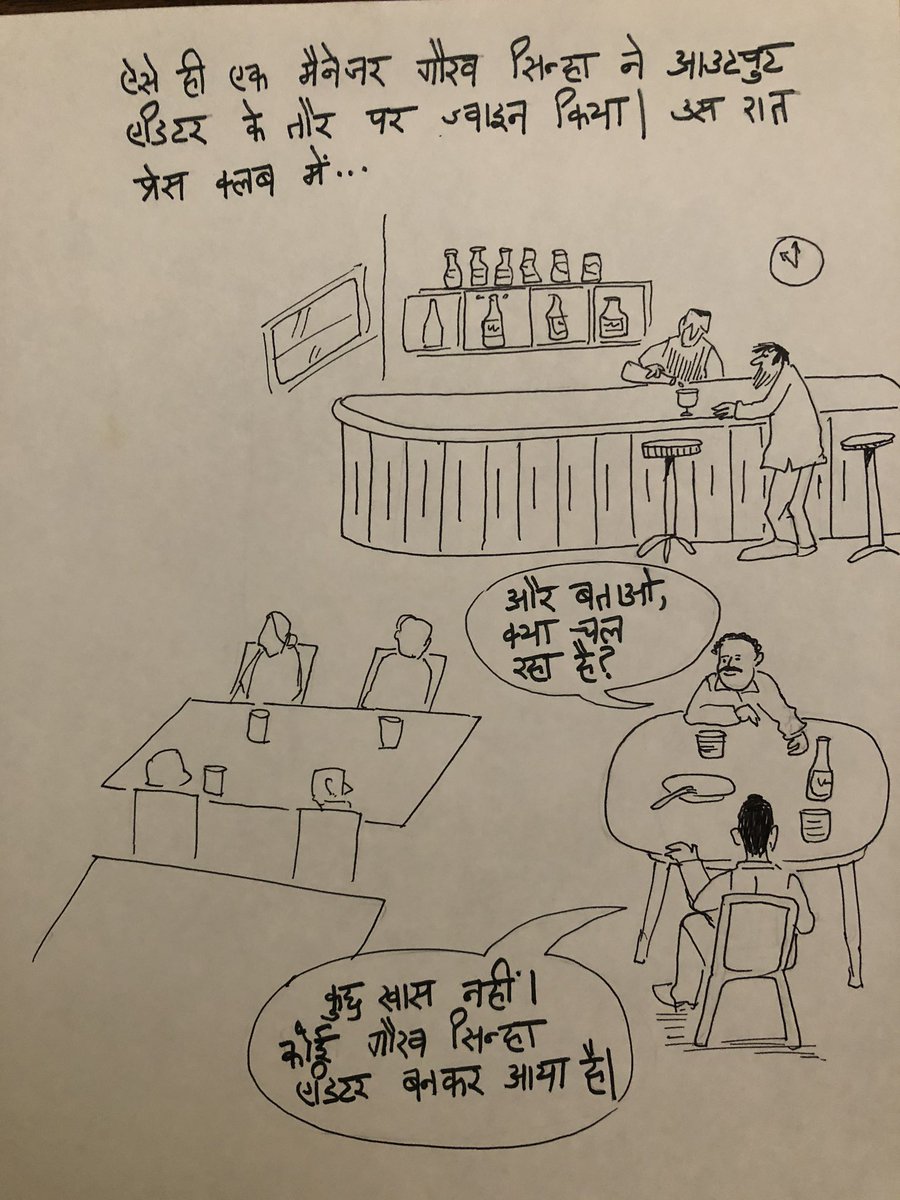 ऐसे ही एक मैनेजर गौरव सिन्हा ने आउटपुट
एडिटर के तौर पर ज्वाइन किया। उस रात
प्रेस क्लब में...
और बताओ,
क्या चल
रहा है?
कुछ खास नहीं।
कोई गौरव सिन्हा
एडिटर बनकर आया है।